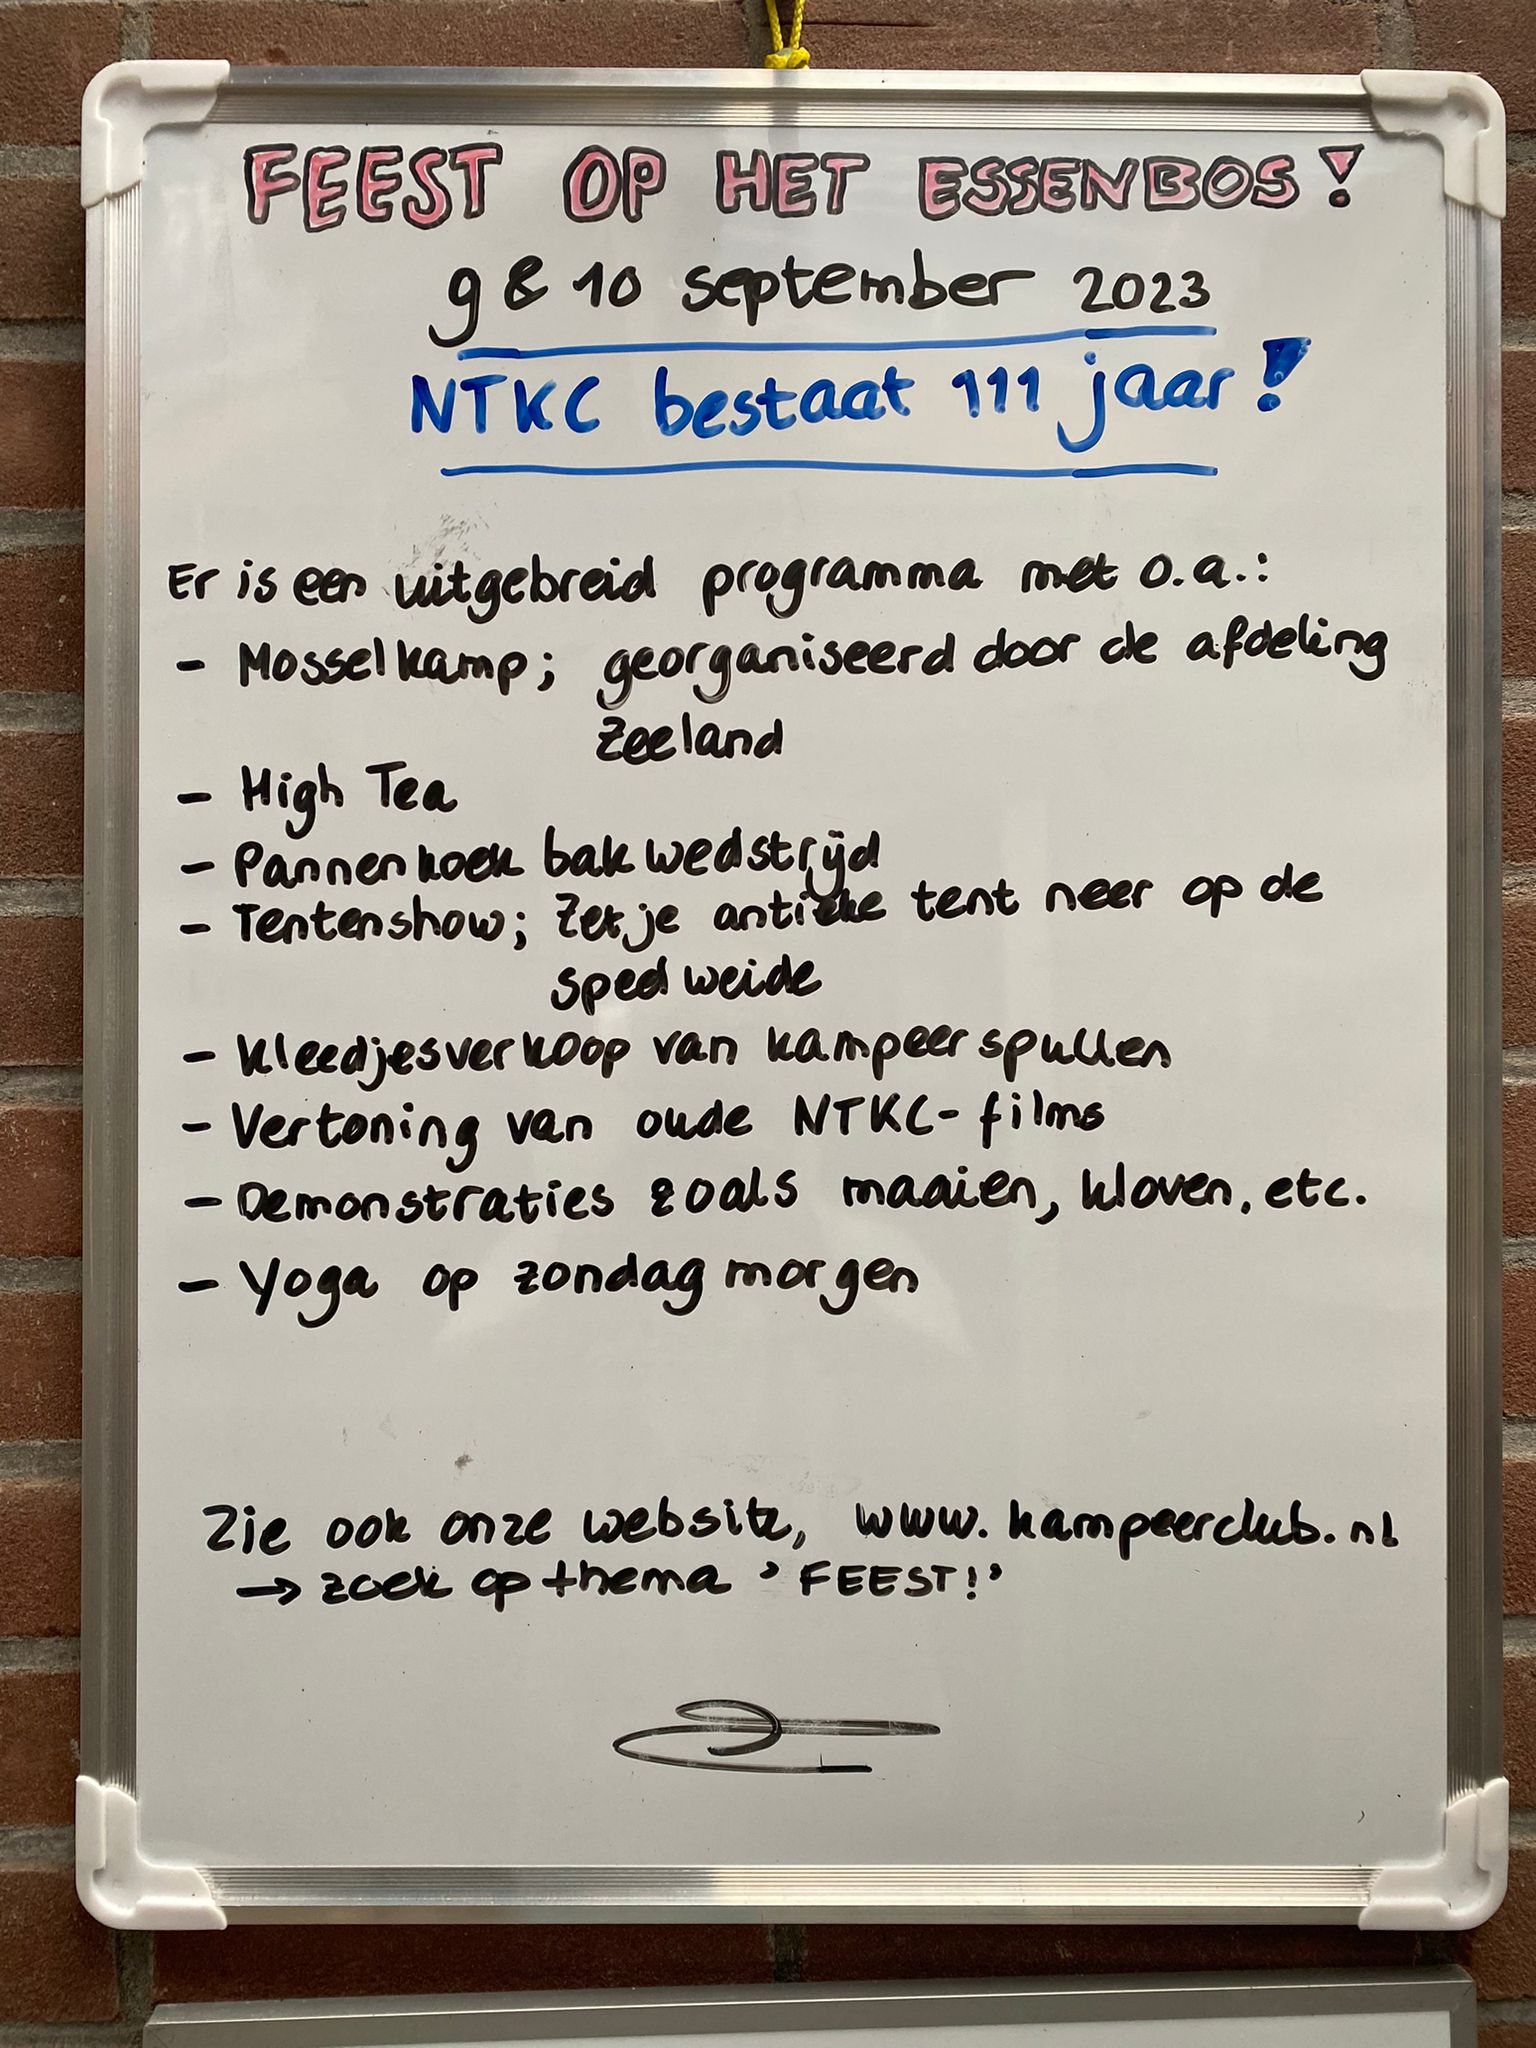 FEEST OP HET ESSENBOS!
9 & 10 september 2023
NTKC bestaat 111 jaar!
Er is een uitgebreid programma met o.a.:
- Mosselkamp; georganiseerd door de afdeling
Zeeland
- High Tea
- Pannenkoek bak wedstrijd
- Tentenshow; Zet je antieke tent neer op de
speelweide
- Kleedjesverkoop van kampeerspullen
- Vertoning van oude NTKC-films
- Demonstraties zoals maaien, kloven, etc.
- Yoga op zondagmorgen
Zie ook onze website, www.kampeerclub.nl
→ zoek op thema 'FEEST!'